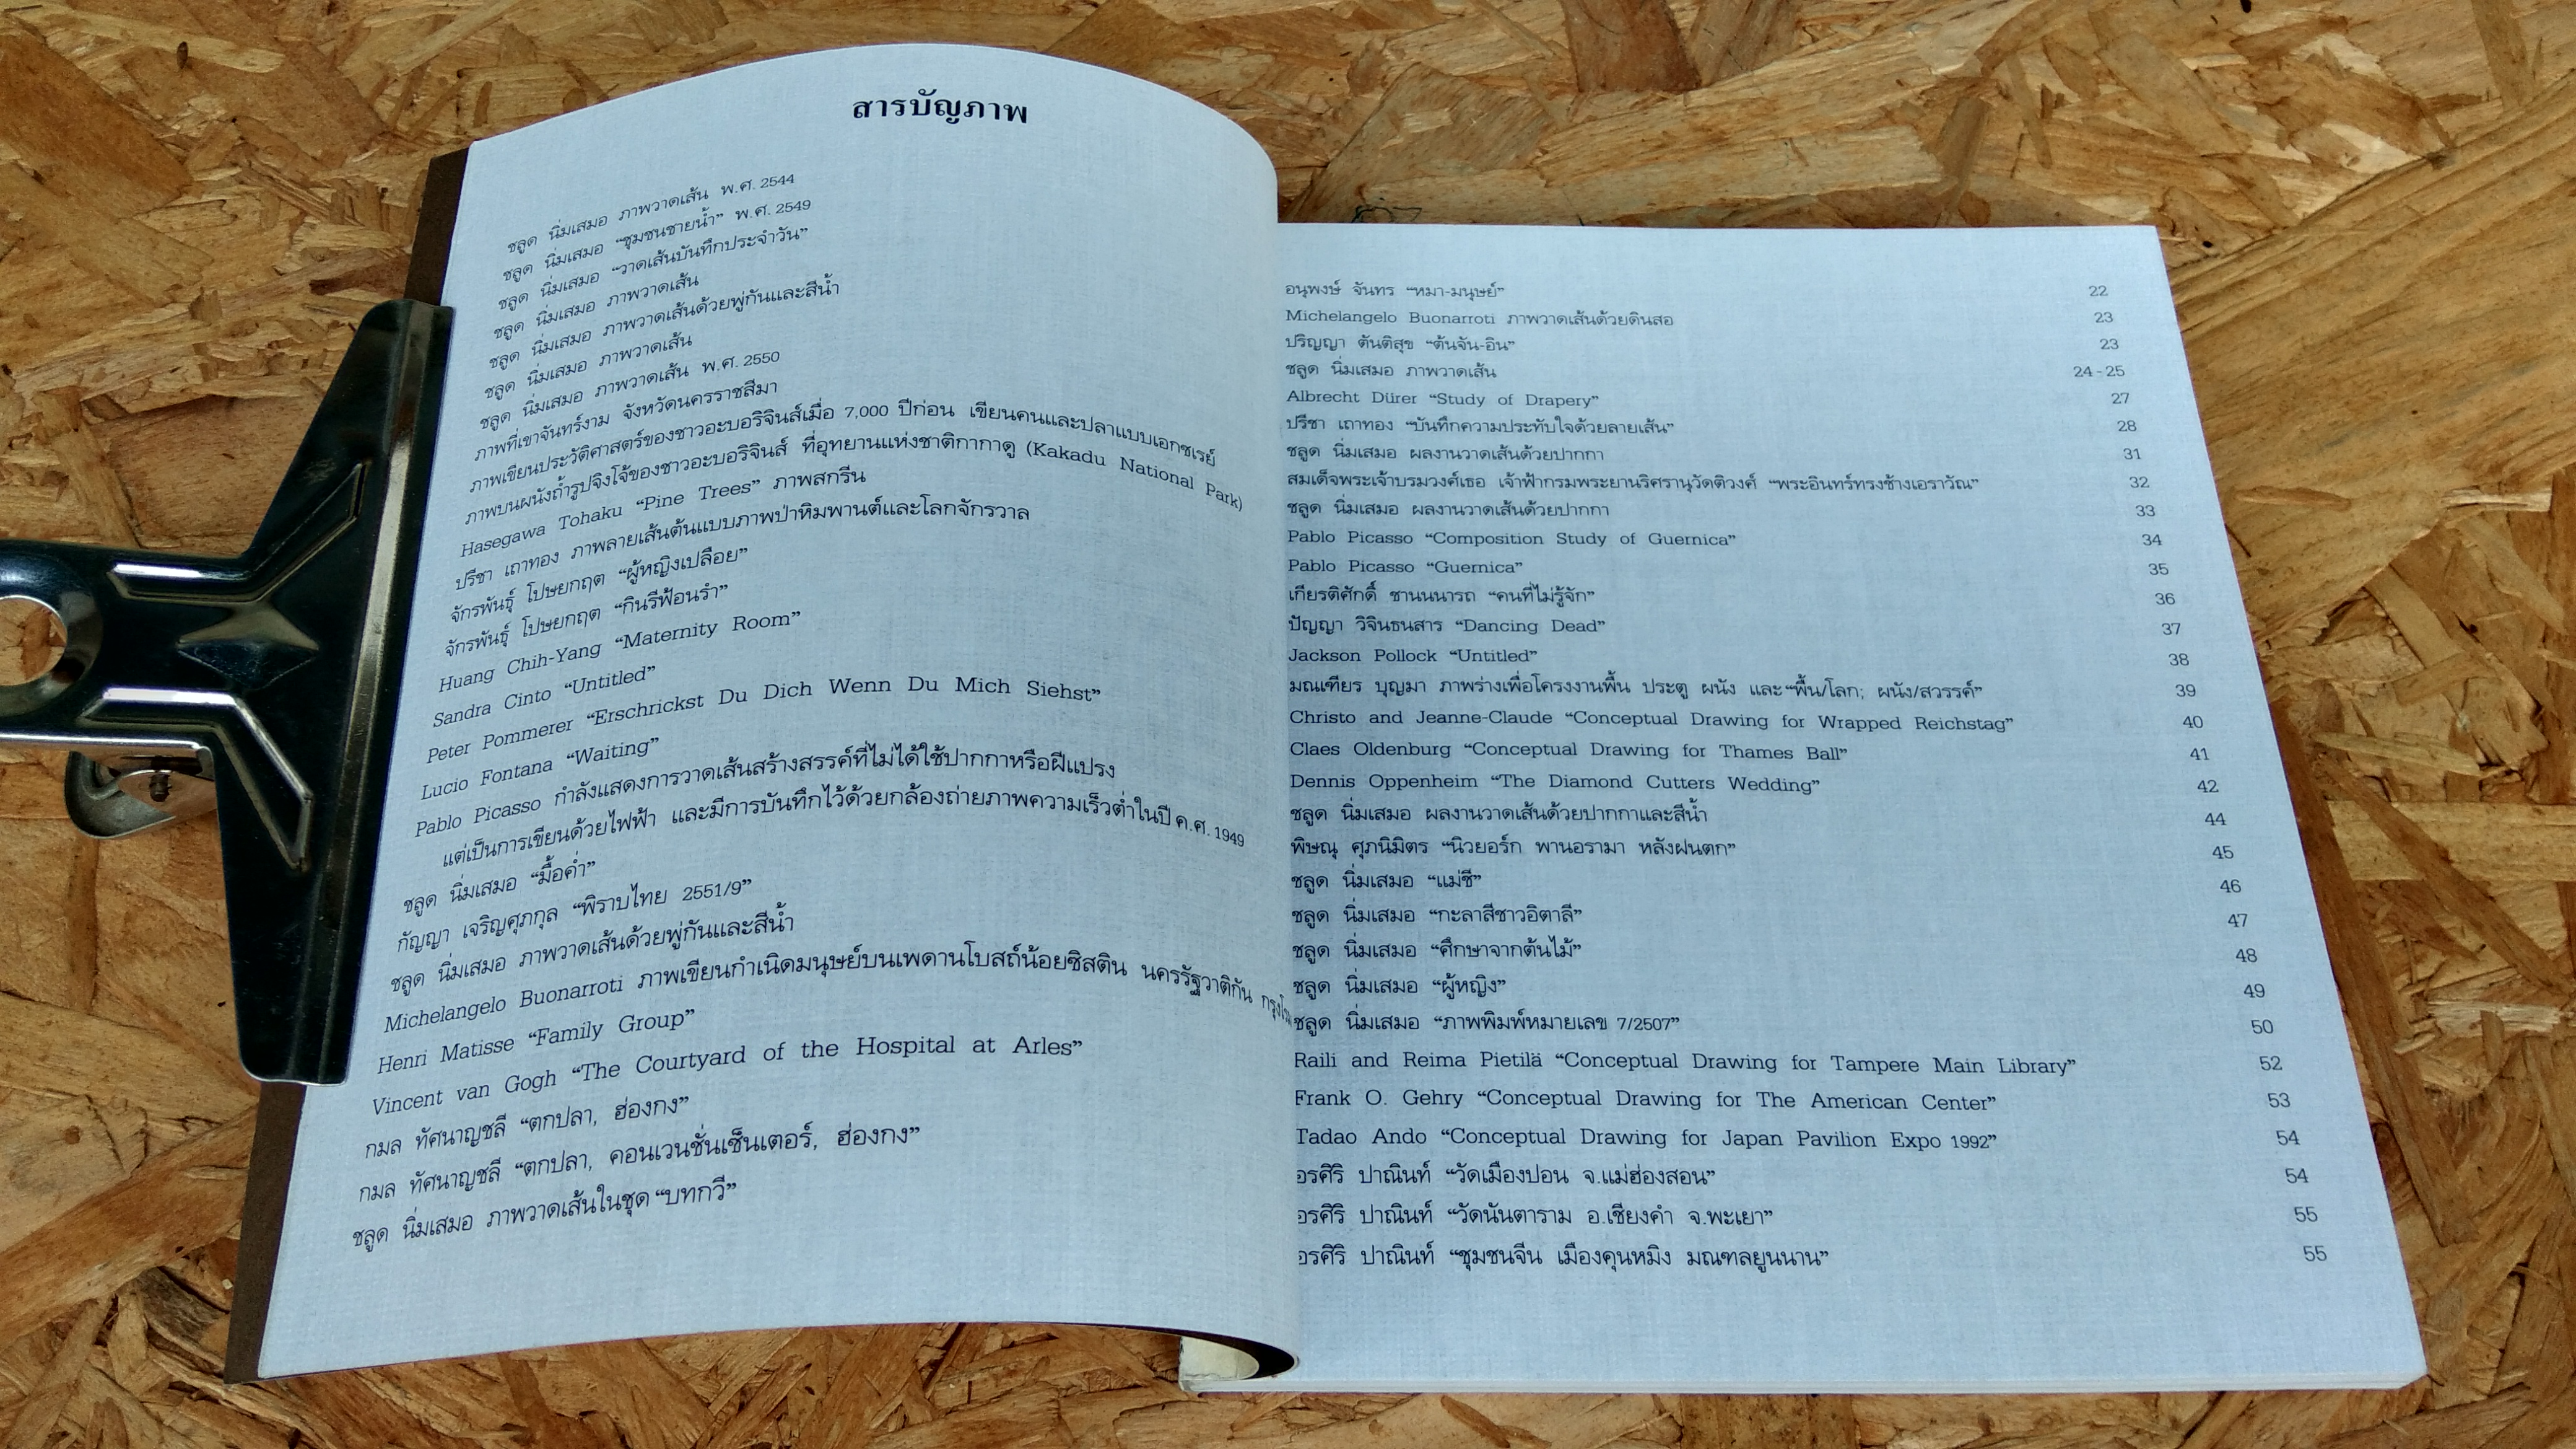 สารบัญภาพ
ชลูด นิ่มเสมอ ภาพวาดเส้น พ.ศ. 2544
ชลูด นิ่มเสมอ “ชุมชนชายน้ำ” พ.ศ. 2549
ชลูด นิ่มเสมอ “วาดเส้นบันทึกประจำวัน”
ชลูด นิ่มเสมอ ภาพวาดเส้น
ชลูด นิ่มเสมอ ภาพวาดเส้นด้วยพู่กันและสีน้ำ
ชลูด นิ่มเสมอ ภาพวาดเส้น
ชลูด นิ่มเสมอ ภาพวาดเส้น พ.ศ. 2550
ภาพที่เขาจันทร์งาม จังหวัดนครราชสีมา
ภาพเขียนประวัติศาสตร์ของชาวอะบอริจินส์เมื่อ 7,000 ปีก่อน เขียนคนและปลาแบบเอกซเรย์
ภาพบนผนังถ้ำรูปจิงโจ้ของชาวอะบอริจินส์ ที่อุทยานแห่งชาติกากาดู (Kakadu National Park)
Hasegawa Tohaku “Pine Trees” ภาพสกรีน
ปรีชา เถาทอง ภาพลายเส้นต้นแบบภาพป่าหิมพานต์และโลกจักรวาล
จักรพันธุ์ โปษยกฤต “ผู้หญิงเปลือย”
จักรพันธุ์ โปษยกฤต “กินรีฟ้อนรำ”
Huang Chih-Yang “Maternity Room”
Sandra Cinto “Untitled”
Peter Pommerer “Erschrickst Du Dich Wenn Du Mich Siehst”
Lucio Fontana “Waiting”
Pablo Picasso กำลังแสดงการวาดเส้นสร้างสรรค์ที่ไม่ได้ใช้ปากกาหรือฝีแปรง
แต่เป็นการเขียนด้วยไฟฟ้า และมีการบันทึกไว้ด้วยกล้องถ่ายภาพความเร็วต่ำในปี ค.ศ. 1949
ชลูด นิ่มเสมอ “มื้อค่ำ”
กัญญา เจริญศุภกุล “พิราบไทย 2551/9”
ชลูด นิ่มเสมอ ภาพวาดเส้นด้วยพู่กันและสีน้ำ
Michelangelo Buonarroti ภาพเขียนกำเนิดมนุษย์บนเพดานโบสถ์น้อยซิสติน นครรัฐวาติกัน
Henri Matisse “Family Group”
Vincent van Gogh “The Courtyard of the Hospital at Arles”
กมล ทัศนาญชลี “ตกปลา, ฮ่องกง”
กมล ทัศนาญชลี “ตกปลา, คอนเวนชั่นเซ็นเตอร์, ฮ่องกง”
ชลูด นิ่มเสมอ ภาพวาดเส้นในชุด “บทกวี”
อนุพงษ์ จันทร “หมา-มนุษย์” 22
Michelangelo Buonarroti ภาพวาดเส้นด้วยดินสอ 23
ปริญญา ตันติสุข “ต้นจัน-อิน” 23
ชลูด นิ่มเสมอ ภาพวาดเส้น 24-25
Albrecht Dürer “Study of Drapery” 27
ปรีชา เถาทอง “บันทึกความประทับใจด้วยลายเส้น” 28
ชลูด นิ่มเสมอ ผลงานวาดเส้นด้วยปากกา 31
สมเด็จพระเจ้าบรมวงศ์เธอ เจ้าฟ้ากรมพระยานริศรานุวัดติวงศ์ “พระอินทร์ทรงช้างเอราวัณ” 32
ชลูด นิ่มเสมอ ผลงานวาดเส้นด้วยปากกา 33
Pablo Picasso “Composition Study of Guernica” 34
Pablo Picasso “Guernica” 35
เกียรติศักดิ์ ชานนนารถ “คนที่ไม่รู้จัก” 36
ปัญญา วิจินธนสาร “Dancing Dead” 37
Jackson Pollock “Untitled” 38
มณเฑียร บุญมา ภาพร่างเพื่อโครงงานพื้น ประตู ผนัง และ “พื้น/โลก; ผนัง/สวรรค์” 39
Christo and Jeanne-Claude “Conceptual Drawing for Wrapped Reichstag” 40
Claes Oldenburg “Conceptual Drawing for Thames Ball” 41
Dennis Oppenheim “The Diamond Cutters Wedding” 42
ชลูด นิ่มเสมอ ผลงานวาดเส้นด้วยปากกาและสีน้ำ 44
พิษณุ ศุภนิมิตร “นิวยอร์ก พานอรามา หลังฝนตก” 45
ชลูด นิ่มเสมอ “แม่ชี” 46
ชลูด นิ่มเสมอ “กะลาสีชาวอิตาลี” 47
ชลูด นิ่มเสมอ “ศึกษาจากต้นไม้” 48
ชลูด นิ่มเสมอ “ผู้หญิง” 49
ชลูด นิ่มเสมอ “ภาพพิมพ์หมายเลข 7/2507” 50
Raili and Reima Pietilä “Conceptual Drawing for Tampere Main Library” 52
Frank O. Gehry “Conceptual Drawing for The American Center” 53
Tadao Ando “Conceptual Drawing for Japan Pavilion Expo 1992” 54
อรศิริ ปาณินท์ “วัดเมืองปอน จ.แม่ฮ่องสอน” 54
อรศิริ ปาณินท์ “วัดนันตาราม อ.เชียงคำ จ.พะเยา” 55
อรศิริ ปาณินท์ “ชุมชนจีน เมืองคุนหมิง มณฑลยูนนาน” 55